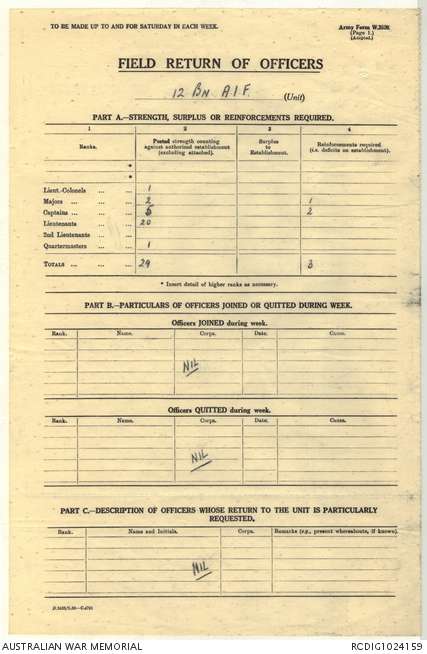 TO BE MADE UP TO AND FOR SATURDAY IN EACH WEEK.
Army Form W.3008
(Page 1.)
(Adapted.)
FIELD RETURN OF OFFICERS
12 BN A.I.F. (Unit)
PART A.—STRENGTH, SURPLUS OR REINFORCEMENTS REQUIRED.
1 2 3 4
Ranks. Posted strength counting against authorized establishment (excluding attached). Surplus to Establishment. Reinforcements required (i.e. deficits on establishment).
*
*
Lieut.-Colonels ... ... 1
Majors ... ... ... 2 1
Captains ... ... ... 5 2
Lieutenants ... ... 20
2nd Lieutenants ... ...
Quartermasters ... ... 1
TOTALS ... ... ... 29 3
* Insert detail of higher ranks as necessary.
PART B.—PARTICULARS OF OFFICERS JOINED OR QUITTED DURING WEEK.
Officers JOINED during week.
Rank. Name. Corps. Date. Cause.
NIL
Officers QUITTED during week.
Rank. Name. Corps. Date. Cause.
NIL
PART C.—DESCRIPTION OF OFFICERS WHOSE RETURN TO THE UNIT IS PARTICULARLY
REQUESTED.
Rank. Name and Initials. Corps. Remarks (e.g., present whereabouts, if known).
NIL
AUSTRALIAN WAR MEMORIAL RCDIG1024159